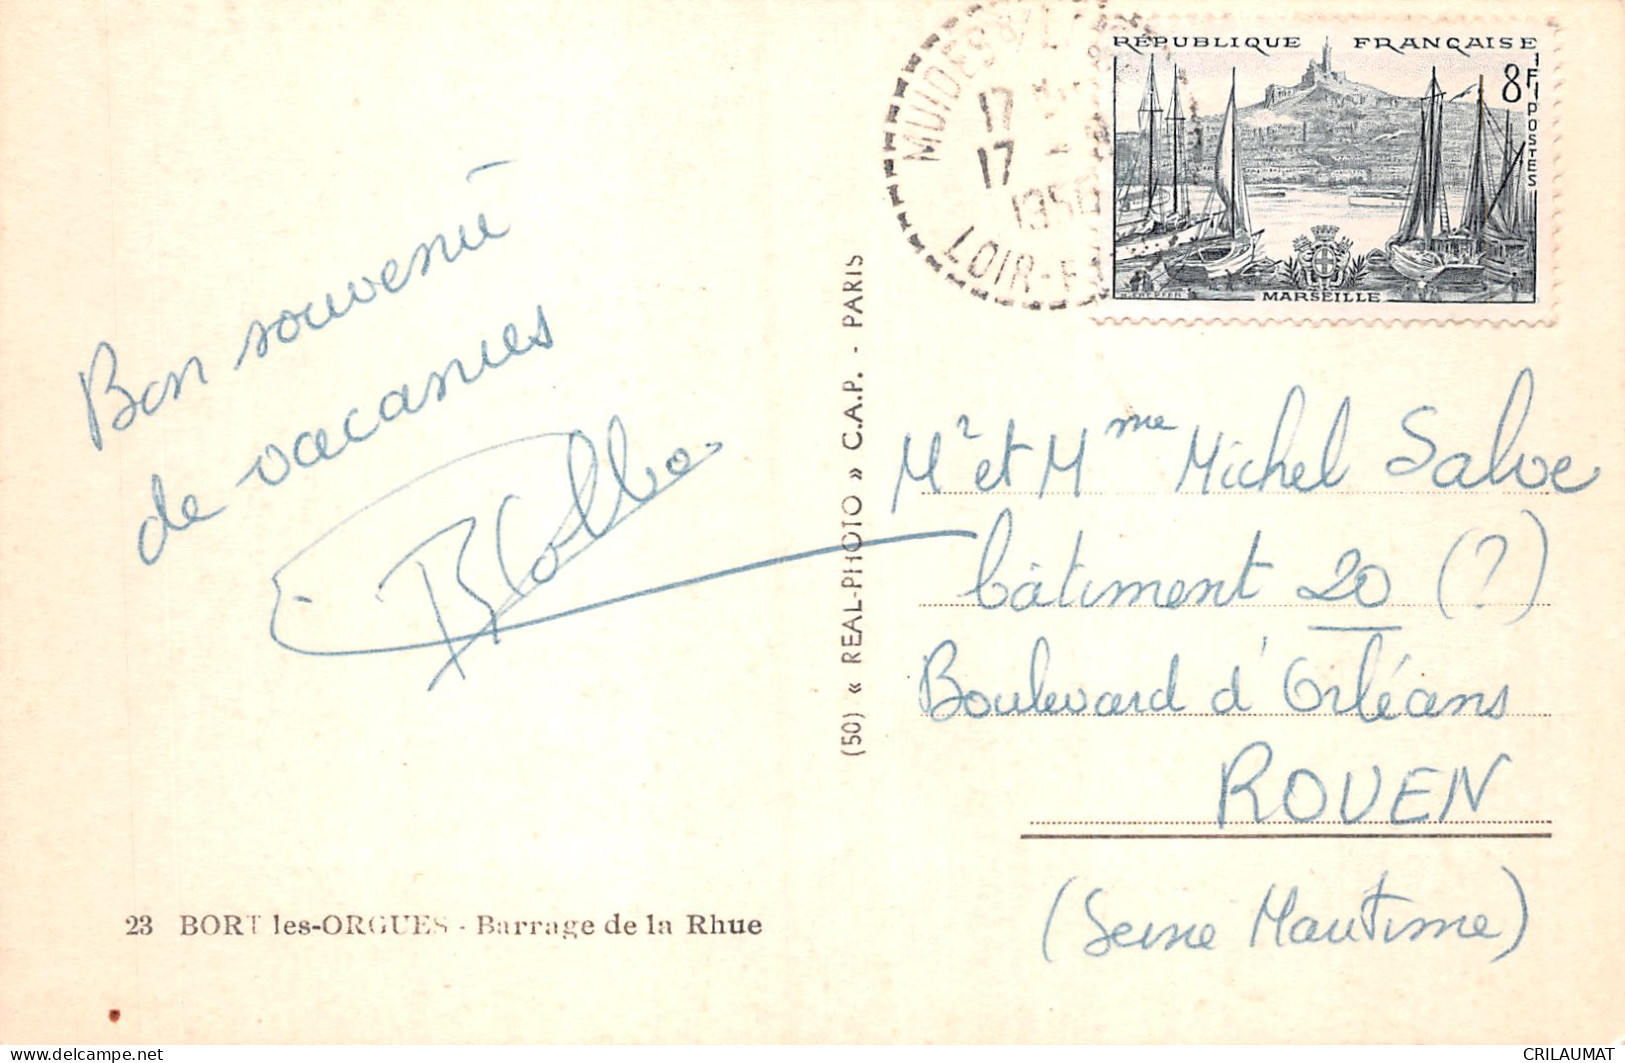 Bon souvenir
de vacances
23 BORT les-ORGUES - Barrage de la Rhue
(50) « REAL-PHOTO » C.A.P. - PARIS
MUIDES S/ LOIRE
17
17 - 8
1958
LOIR-E
RÉPUBLIQUE FRANÇAISE
8F
POSTES
MARSEILLE
Mr et Mme Michel Salve
bâtiment 20 (?)
Boulevard d'Orléans
ROUEN
(Seine Maritime)
CRILAUMAT